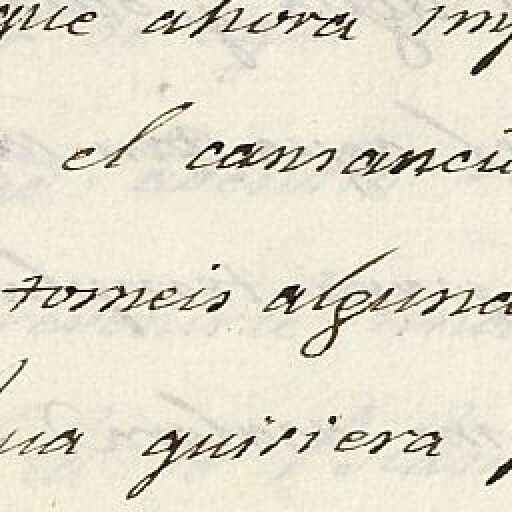 que ahora imp
el cansancio
tomeis alguna
lua quisiera